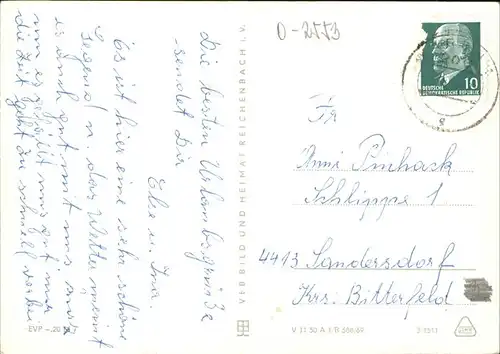 Die besten Urlaubsgrüße
sendet Dir
Else u. Ina.
Es ist hier eine sehr schöne
Gegend u. das Wetter meint
es auch gut mit uns nur
uns es gefällt uns gut nur
die Zeit geht zu schnell vorbei
EVP –.20 M
VEB BILD UND HEIMAT REICHENBACH i. V.
0-2553
10
DEUTSCHE
DEMOKRATISCHE REPUBLIK
Fr
Anni Pinhack
Schlippe 1
4413 Sandersdorf
Krs. Bitterfeld
V 11 50 A 1/B 588/69